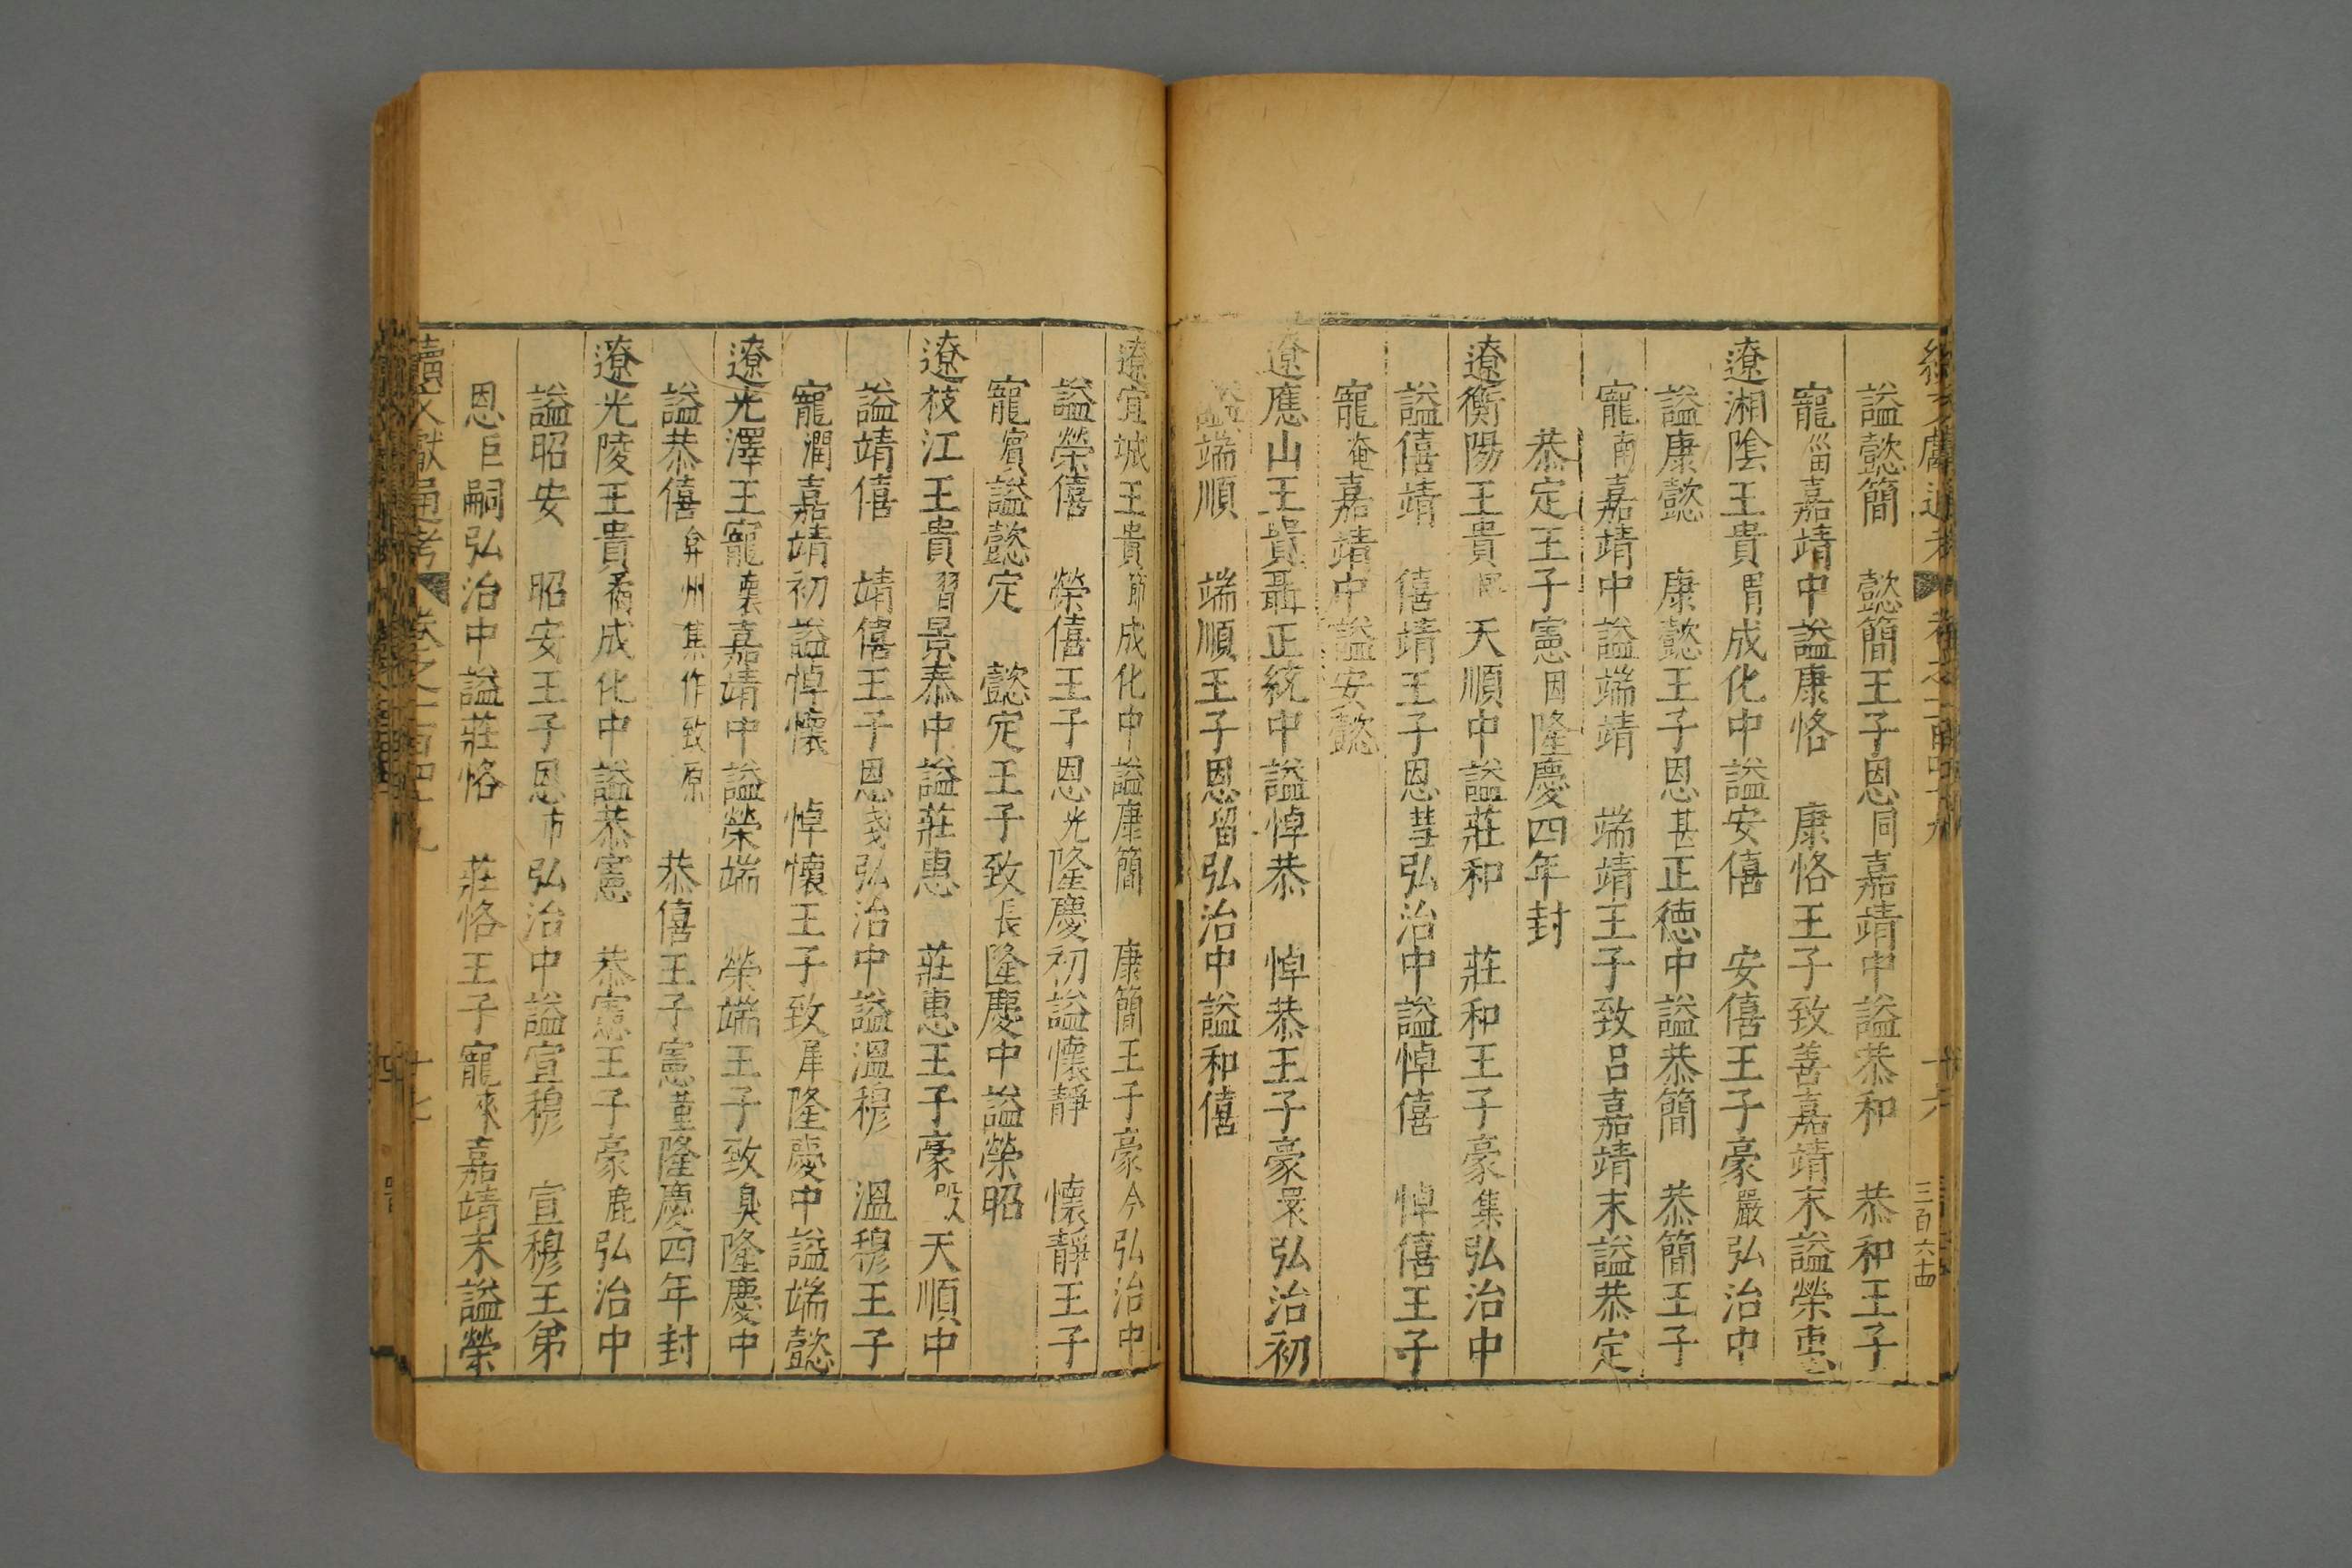 謚懿簡　懿簡王子恩同嘉靖中謚恭和　恭和王子
寵淄嘉靖中謚康恪　康恪王子致善嘉靖末謚榮惠
遼湘陰王貴㷉成化中謚安僖　安僖王子豪嚴弘治中
謚康懿　康懿王子恩甚正德中謚恭簡　恭簡王子
寵南嘉靖中謚端靖　端靖王子致呂嘉靖末謚恭定
恭定王子憲因隆慶四年封
遼衡陽王貴　天順中謚莊和　莊和王子豪集弘治中
謚僖靖　僖靖王子恩彗弘治中謚悼僖　悼僖王子
寵奄嘉靖中謚安懿
遼應山王貴聶正統中謚悼恭　悼恭王子豪睘弘治初
謚端順　端順王子恩留弘治中謚和僖
遼宜城王貴節成化中謚康簡　康簡王子豪今弘治中
謚榮僖　榮僖王子恩光隆慶初謚懷靜　懷靜王子
寵賓謚懿定　懿定王子致長隆慶中謚榮昭
遼枝江王貴習景泰中謚莊惠　莊惠王子豪　天順中
謚靖僖　靖僖王子恩戔弘治中謚溫穆　溫穆王子
寵潤嘉靖初謚悼懷　悼懷王子致犀隆慶中謚端懿
遼光澤王寵㐮嘉靖中謚榮端　榮端王子致臭隆慶中
謚恭僖弇州集作致原　恭僖王子憲堇隆慶四年封
遼光陵王貴矞成化中謚恭憲　恭憲王子豪鹿弘治中
謚昭安　昭安王子恩市弘治中謚宣穆　宣穆王弟
恩巨嗣弘治中謚莊恪　莊恪王子寵來嘉靖末謚榮
續文獻通考　卷之二百四十九　十七